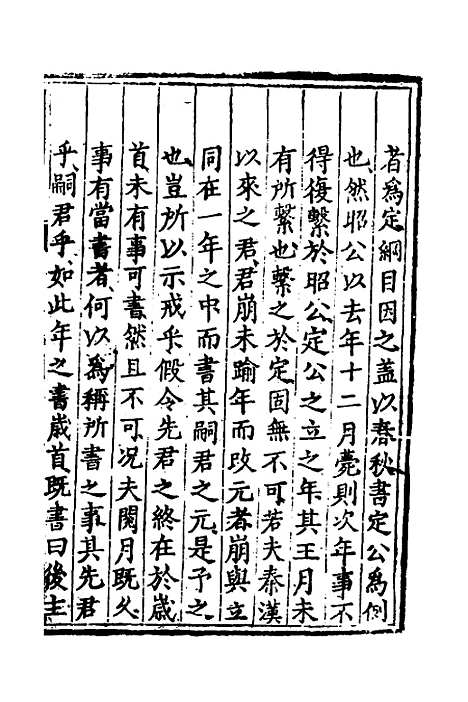 者為定綱目因之蓋以春秋書定公為例
也然昭公以去年十二月薨則次年事不
得復繫於昭公定公之立之年其王月未
有所繫也繫之於定固無不可若夫秦漢
以來之君君崩未踰年而改元者崩與立
同在一年之中而書其嗣君之元是予之
也豈所以示戒乎假令先君之終在於歲
首未有事可書然且不可況夫閱月旣久
事有當書者何以為稱所書之事其先君
乎嗣君乎如此年之書歲首旣書曰後主